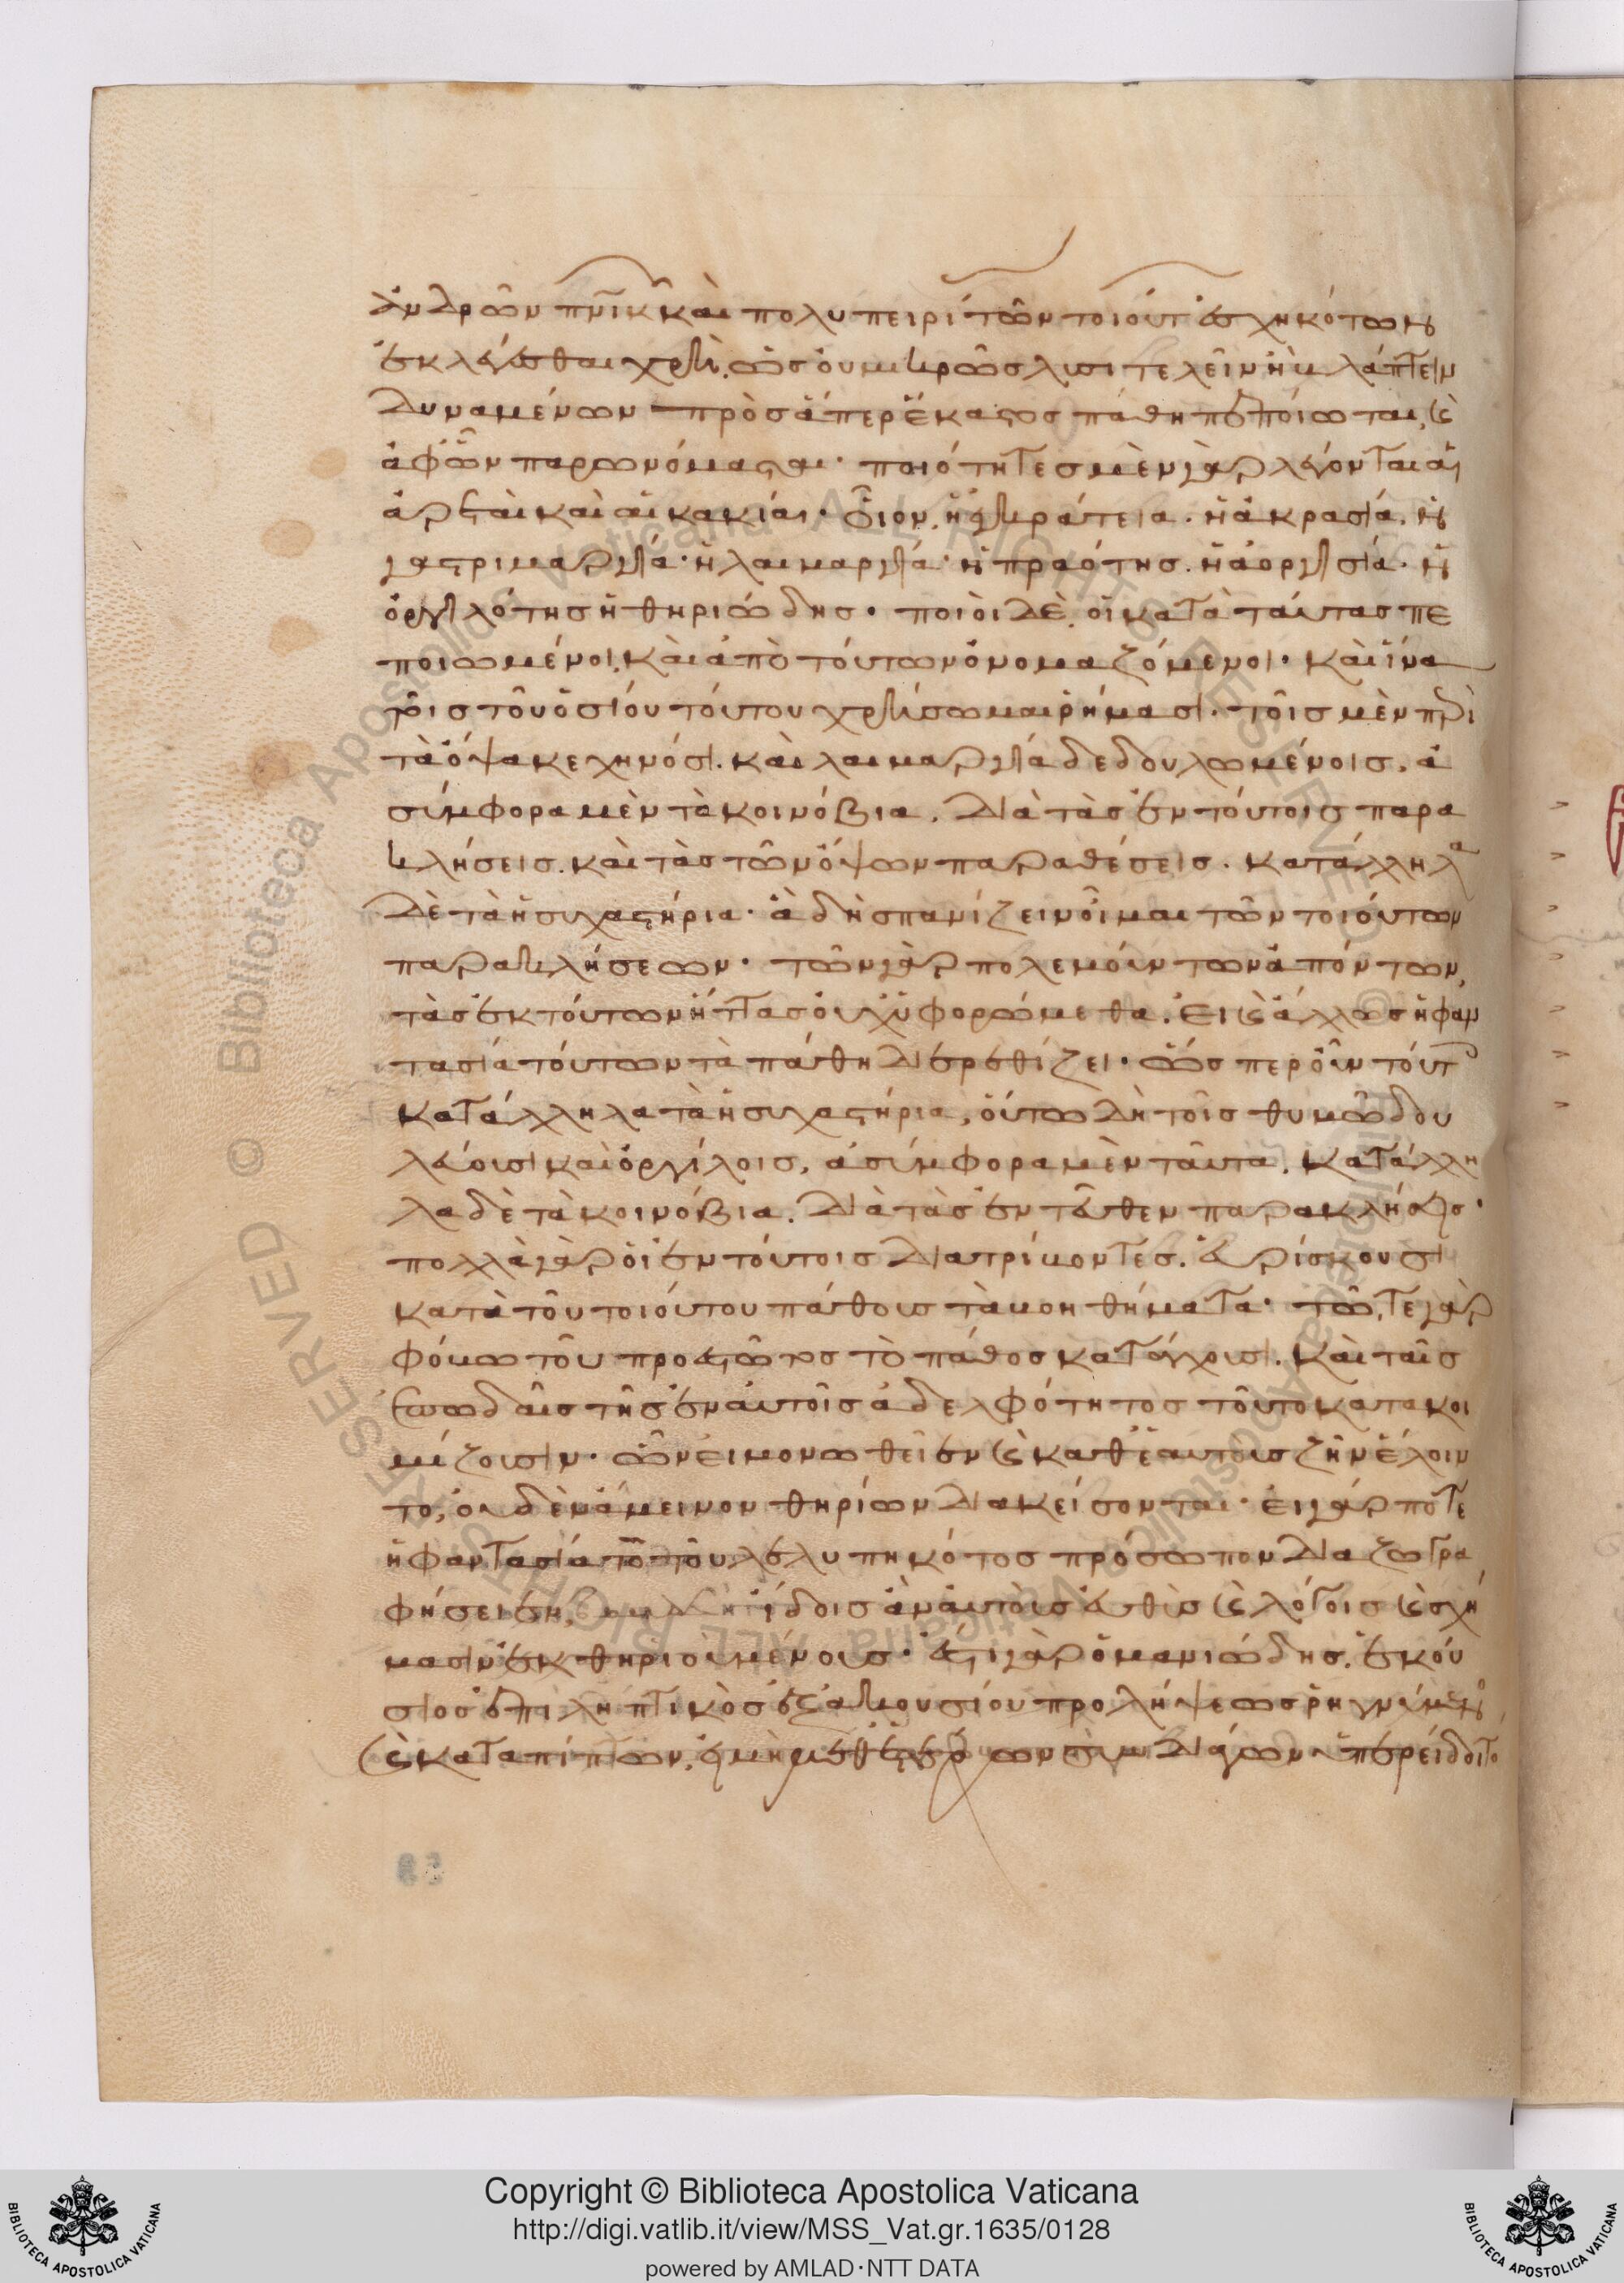 ἀνδρῶν πνικῶν καὶ πολυπειρίαν τῶν τοιούτων ἐσχηκότων
ἐκλέγεσθαι χρή. ὡς οὐ μικρῶς λυσιτελεῖν ἢ βλάπτειν
δυναμένων πρὸς ἅπερ ἕκαστος πάθη πεποίωται, καὶ
ἀφ' ὧν παρωνόμασται· ποιότητες μὲν γὰρ λέγονται αἱ
ἀρεταὶ καὶ αἱ κακίαι· οἷον, ἡ ἐγκράτεια. ἡ ἀκρασία. ἡ
γαστριμαργία· ἡ λαιμαργία· ἡ πραότης. ἡ ἀοργησία· ἡ
ὀργιλότης ἡ θηριώδης· ποιοὶ δὲ, οἱ κατὰ ταύτας πε
ποιωμένοι, καὶ ἀπὸ τούτων ὀνομαζόμενοι· καὶ ἵνα
τοῖς τοῦ ὁσίου τούτου χρήσωμαι ῥήμασι· τοῖς μὲν περὶ
τὰ ὄψα κεχηνόσι. καὶ λαιμαργία δεδουλωμένοις, ἀ
σύμφορα μὲν τὰ κοινόβια, διὰ τὰς ἐν τούτοις παρα
κλήσεις. καὶ τὰς τῶν ὄψων παραθέσεις. κατάλληλα
δὲ τὰ ἡσυχαστήρια· ἃ δὴ σπανίζειν οἶμαι τῶν τοιούτων
παρακλήσεων· τῶν γὰρ πολεμούντων ἀπόντων,
τὰς ἐκ τούτων ἥττας οὐχ ὑφορώμεθα. εἰ καὶ ἄλλως ἡ φαν
τασία τούτων τὰ πάθη διερεθίζει· ὥσπερ οὖν τούτοις
κατάλληλα τὰ ἡσυχαστήρια, οὕτω δὴ τοῖς θυμῶ δου
λεύουσι καὶ ὀργίλοις, ἀσύμφορα μὲν ταῦτα. κατάλλη
λα δὲ τὰ κοινόβια. διὰ τὰς ἐντεῦθεν παρακλήσεις·
πολλὰ γὰρ οἱ ἐν τούτοις διατρίβοντες. εὑρίσκουσι
κατὰ τοῦ τοιούτου πάθους τὰ βοηθήματα· τῶ, τε γὰρ
φόβω τοῦ προεστῶτος τὸ πάθος κατάγχουσι. καὶ ταῖς
ἐπωδαῖς τῆς ἐν αὐτοῖς ἀδελφότητος τοῦτο κατακοι
μίζουσιν· ὧν εἰ μονωθεῖεν καὶ καθ' ἑαυτοὺς ζῆν ἕλοιν
το, οὐδὲν ἄμεινον θηρίων διακείσονται· εἰ γάρ ποτε
ἡ φαντασία τὸ τοῦ λελυπηκότος πρόσωπον διαζωγρα
φήσειεν, ἴδοις ἂν αὐτοὺς εὐθὺς καὶ λόγοις καὶ σχή
μασιν ἐκθηριουμένους· ἔστι γὰρ ὁ μανιώδης. ἑκού
σιος ἐπιληπτικὸς ἐξ ἀκουσίου προλήψεως ῥηγνύμενος,
καὶ καταπίπτων,